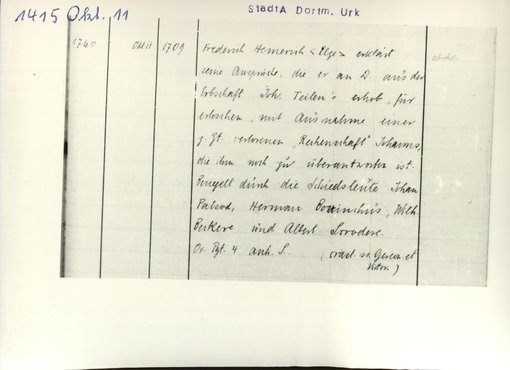 1415 Okt. 11
StadtA Dortm. Urk
1760 Okt 11 1709 Frederich Hemerich <Ulge> erklärt
seine Ansprüche, die er an D. aus der
Erbschaft Joh. Teilen's erhob, für
erloschen, mit Ausnahme einer
z. Zt. verlorenen "Rechenschaft" Johanns,
die ihm noch zu überantworten ist.
Besiegelt durch die Schiedsleute Johan
Palsod, Herman Wilh.
Beckere und Albert
Or. Pgt. 4 anh. S. (crast. ss. Gereon. et
Victor.)